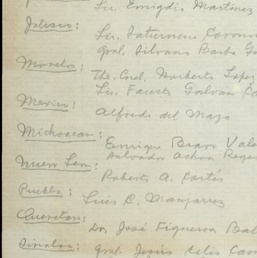 Lic. Emigdio Martínez
Jalisco: Lic. Saturnino Coronado
Gral. Silvano Barba Go
Morelos: Tte. Corl. Norberto López
Lic. Fausto Galván Ca
México: Alfredo del Mazo
Michoacán: Enrique Bravo Vale
Salvador Ochoa Reyes
Nuevo León: Roberto A. Cortés
Puebla: Luis C. Manjarrez
Querétaro: Dr. José Figueroa Bal
Sinaloa: Gral. Jesús Celis Cam